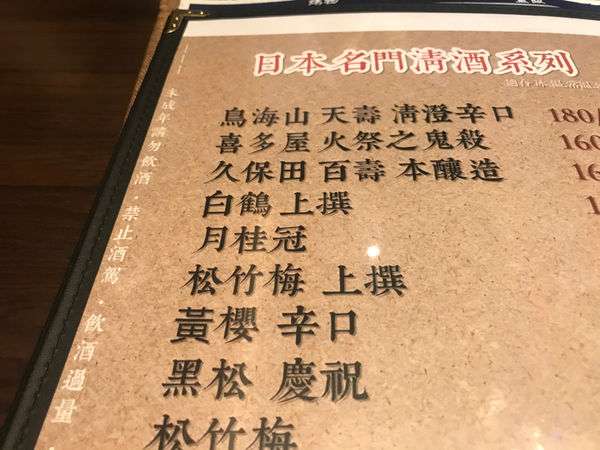 日本名門清酒系列
鳥海山 天壽 清澄辛口 180/
喜多屋 火祭之鬼殺 160
久保田 百壽 本釀造 16
白鶴 上撰 1
月桂冠
松竹梅 上撰
黃櫻 辛口
黑松 慶祝
松竹梅
未成年請勿飲酒・禁止酒駕・飲酒過量